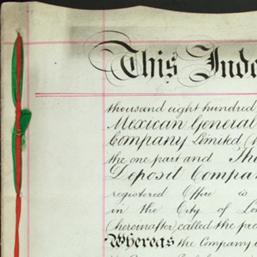 This Inde
thousand eight hundred
Mexican General
Company Limited (
the one part and The
Deposit Compan
registered Office is
in the City of Lon
(hereinafter called the
Whereas the Company